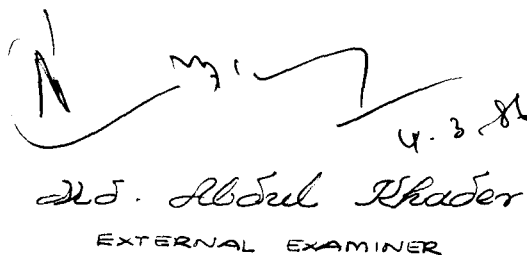 4.3.86
Md. Abdul Khader
EXTERNAL EXAMINER